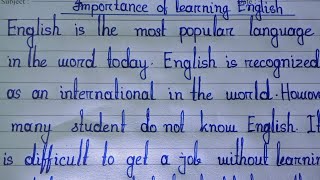 Subject :
Importance of learning English
English is the most popular language
in the word today. English is recognized
as an international in the world. Howeve
many student do not know English. It
is difficult to get a job without learnin